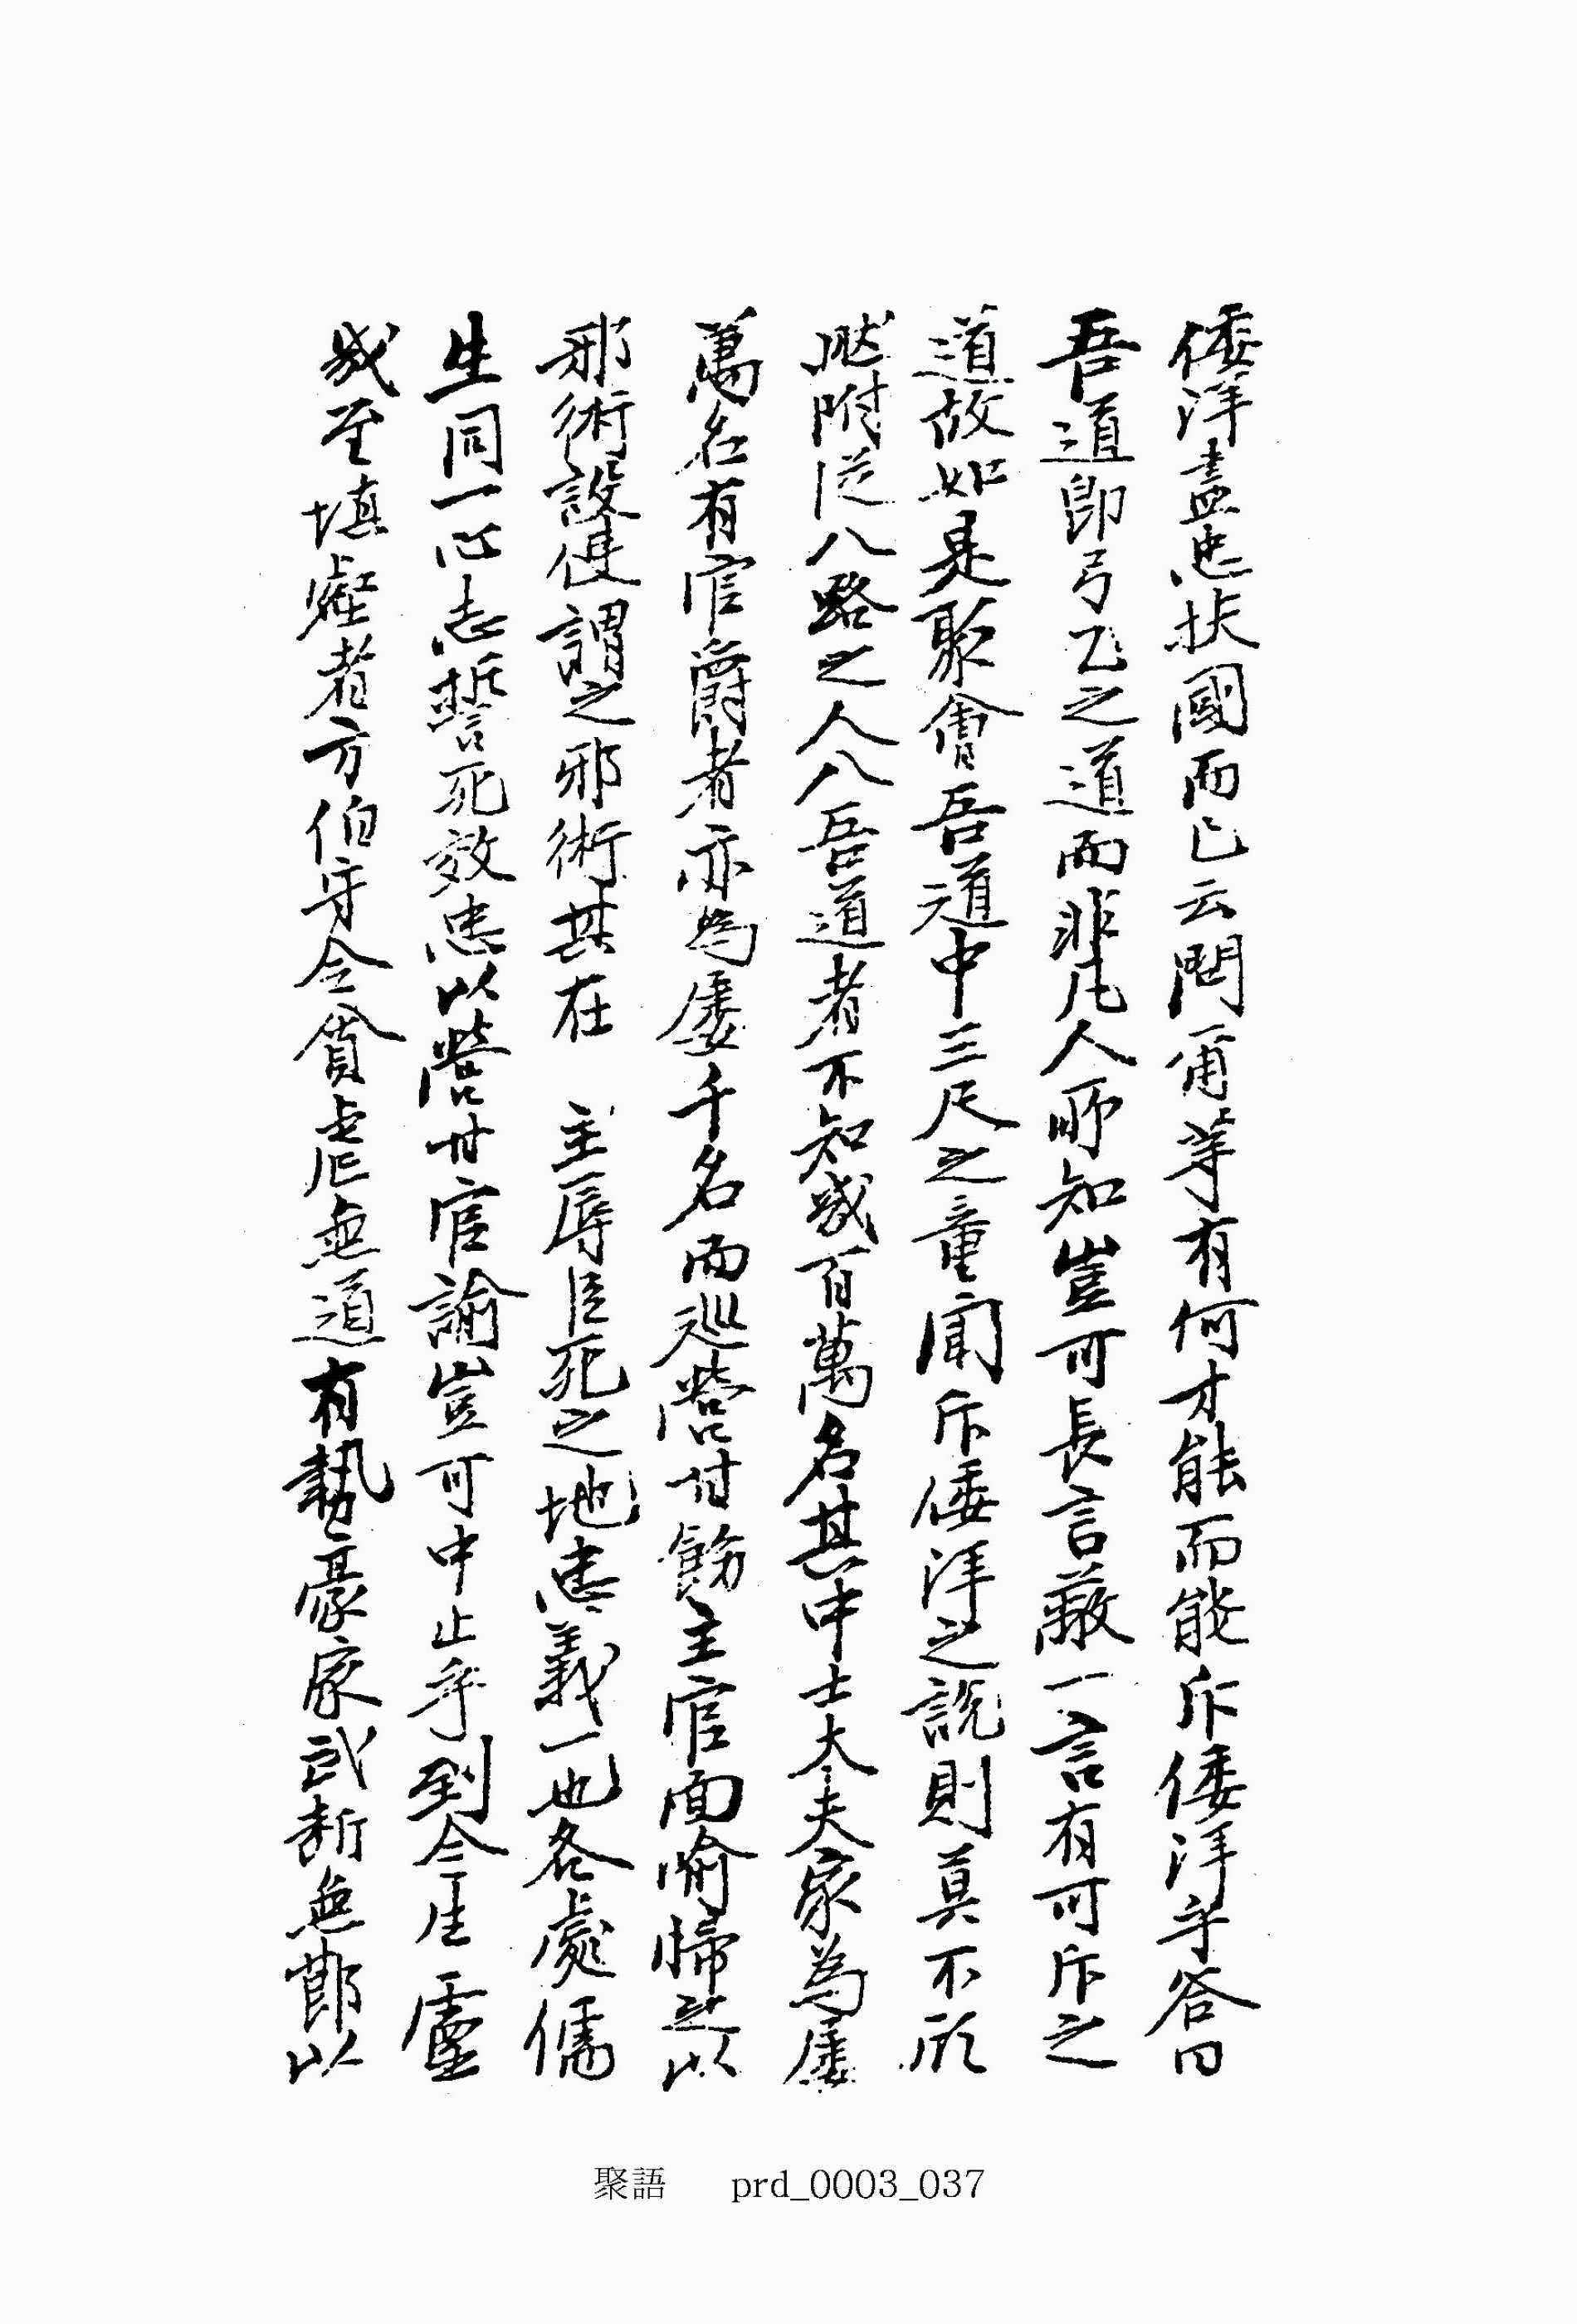 倭洋盡忠扶國而已云問甫等有何才能而能斥倭洋乎答曰
吾道卽弓乙之道而非凡人所知豈可長言蔽一言有可斥之
道故如是聚會吾道中三尺之童聞斥倭洋之說則莫不欣
然附從八路之人人吾道者不知或百萬名其中士大夫家爲屢
萬名有官爵者亦爲屢千名而巡營甘飭主官面喻歸之以
邪術設使謂之邪術其在 主辱臣死之地忠義一也各處儒
生同一心志誓死效忠以營甘官諭豈可中止乎到今生靈
或至塡壑者方伯守令貪虐無道有勢豪家武斷無節以
聚語 prd_0003_037